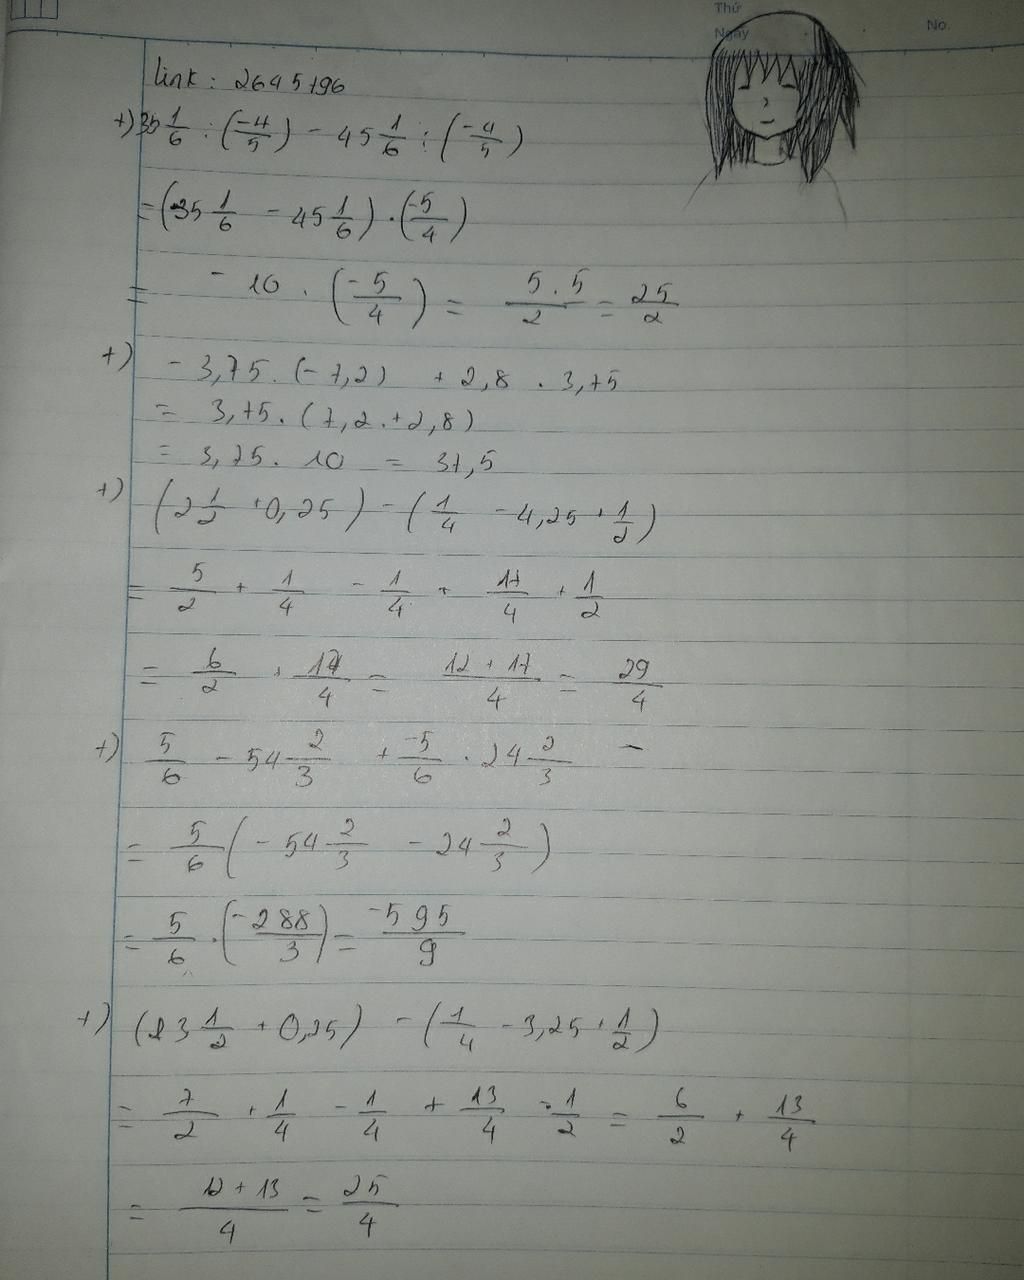 Thứ
Ngày
No.
link : 2645196
+) 35 1/6 : (-4/5) - 45 1/6 : (-4/5)
= (35 1/6 - 45 1/6) . (-5/4)
= -10 . (-5/4) = 5.5/2 = 25/2
+) - 3,75 . (-7,2) + 2,8 . 3,75
= 3,75 . (7,2 + 2,8)
= 3,75 . 10 = 37,5
+) (2 1/2 + 0,25) - (1/4 - 4,25 + 1/2)
= 5/2 + 1/4 - 1/4 + 17/4 + 1/2
= 6/2 + 17/4 = 12 + 17/4 = 29/4
+) 5/6 - 54 2/3 + -5/6 . 24 2/3 -
= 5/6 (- 54 2/3 - 24 2/3)
= 5/6 . (-288/3) = -595/9
+) (3 1/2 + 0,25) - (1/4 - 3,25 + 1/2)
= 7/2 + 1/4 - 1/4 + 13/4 - 1/2 = 6/2 + 13/4
= 12 + 13/4 = 25/4